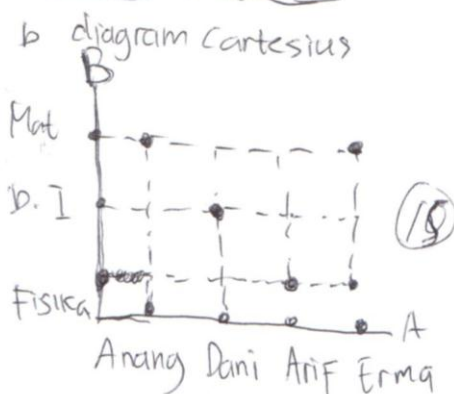 b diagram Cartesius
B
Mat
b. I
Fisika
A
Anang Dani Arif Erma